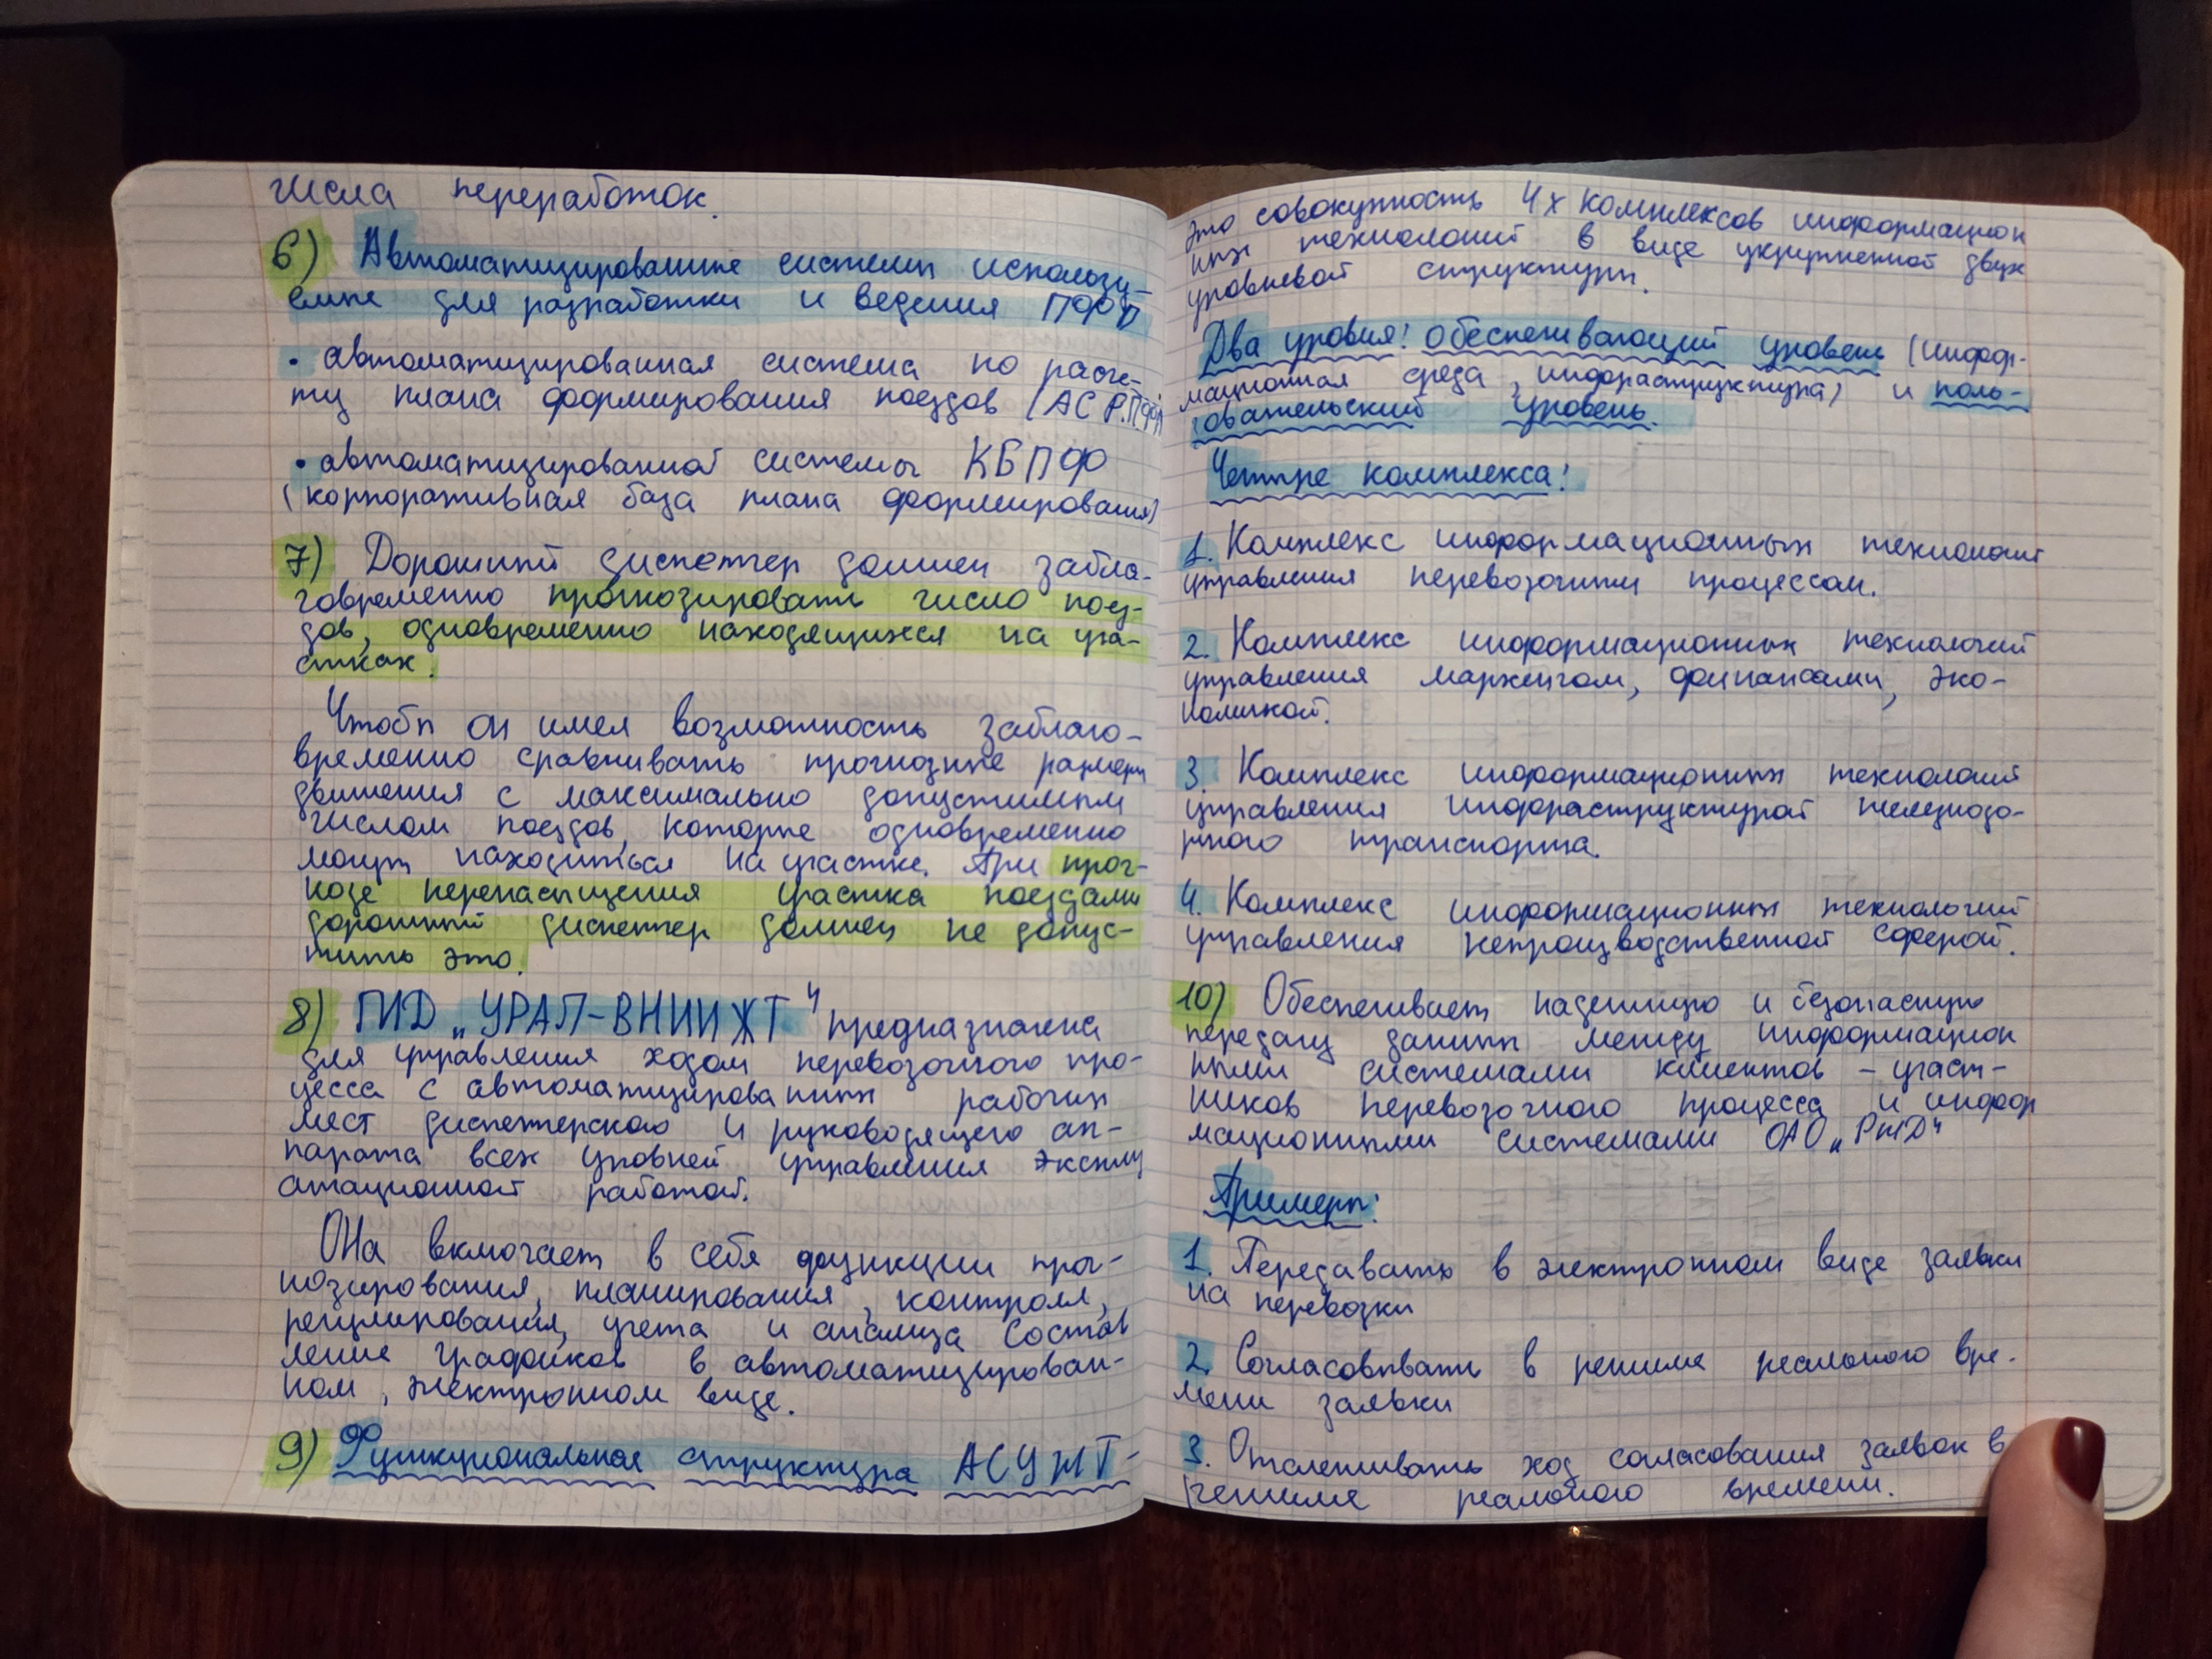 числа переработок.
6) Автоматизированные системы использу-
емые для разработки и ведения ПФП
• автоматизированная система по расче-
ту плана формирования поездов (АС Р.ПФП)
• автоматизированной системы КБПФ
(корпоративная база плана формирования)
7) Дорожный диспетчер должен забла-
говременно прогнозировать число поез-
дов, одновременно находящихся на уча-
стках.
Чтобы он имел возможность заблаго-
временно сравнивать прогнозные размеры
движения с максимально допустимым
числом поездов, которые одновременно
могут находиться на участке. При прог-
нозе перенасыщения участка поездами
дорожный диспетчер должен не допус-
тить это.
8) ГИД „УРАЛ-ВНИИЖТ" предназначена
для управления ходом перевозочного про-
цесса с автоматизированных рабочих
мест диспетчерского и руководящего ап-
парата всех уровней управления эксплу
атационной работой.
Она включает в себя функции прог-
нозирования, планирования, контроля,
регулирования, учета и анализа состав
ление графиков в автоматизирован-
ном, электронном виде.
9) Функциональная структура АСУЖТ-
это совокупность 4х комплексов информацион
ных технологий в виде укрупненной двух
уровневой структуры.
Два уровня: обеспечивающий уровень (инфор-
мационная среда, инфраструктура) и поль-
зовательский уровень.
Четыре комплекса:
1. Комплекс информационных технологий
управления перевозочным процессом.
2. Комплекс информационных технологий
управления маркенгом, финансами, эко-
номикой.
3. Комплекс информационных технологий
управления инфраструктурой железнодо-
рожного транспорта.
4. Комплекс информационных технологий
управления непроизводственной сферой.
10) Обеспечивает надежную и безопасную
передачу данных между информацион
ными системами клиентов - участ-
ников перевозочного процесса и инфор
мационными системами ОАО „РЖД"
Примеры:
1. Передавать в электронном виде заявки
на перевозки
2. Согласовывать в режиме реального вре-
мени заявки
3. Отслеживать ход согласования заявок в
режиме реального времени.